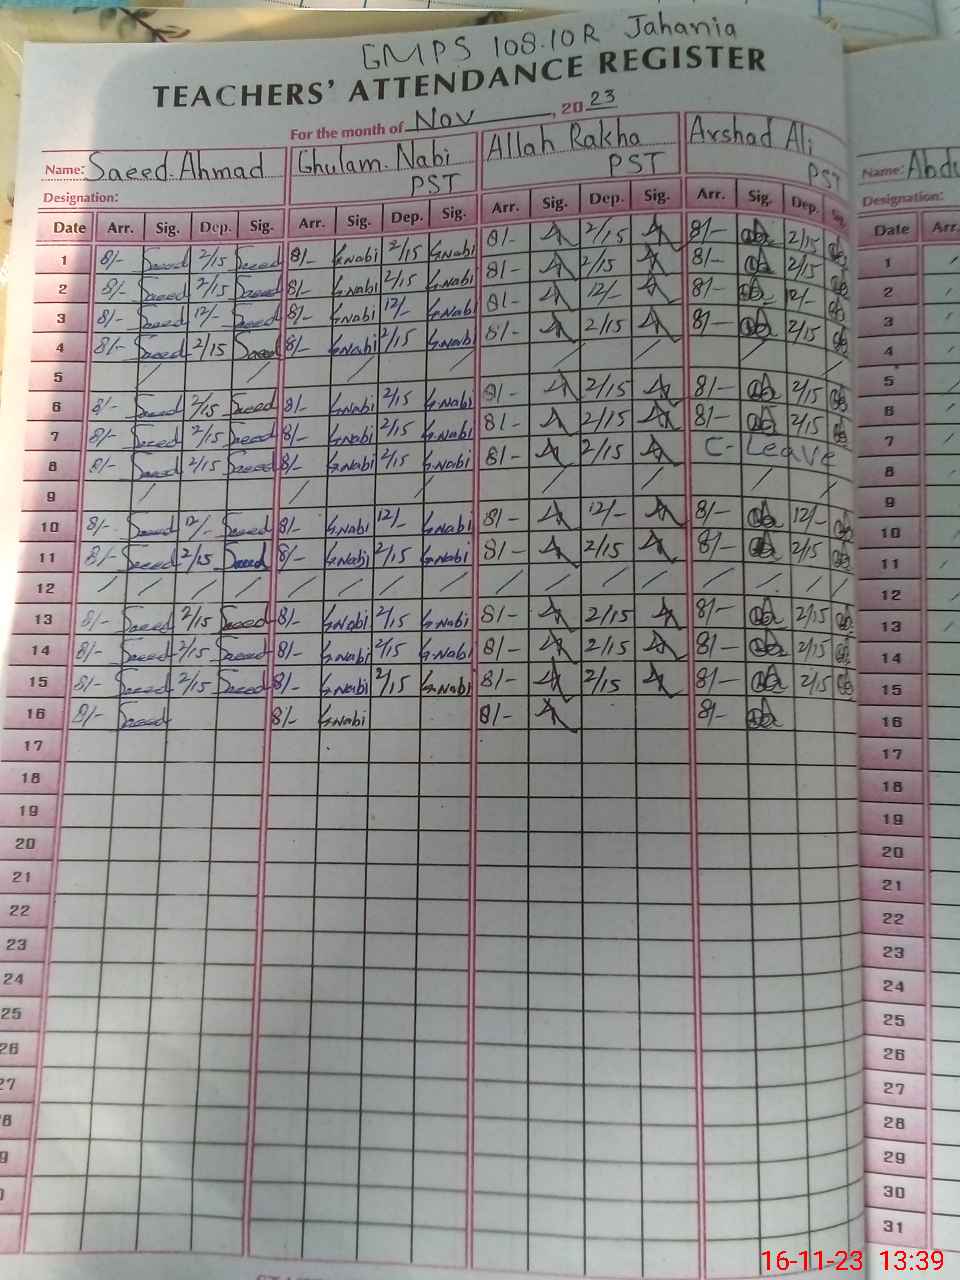 GMPS 108.10R Jahania
TEACHERS' ATTENDANCE REGISTER
For the month of Nov, 2023
Name: Saeed. Ahmad Ghulam. Nabi Allah Rakha Arshad Ali Name: Abdu
Designation: PST PST PST Designation:
Date Arr. Sig. Dep. Sig. Arr. Sig. Dep. Sig. Arr. Sig. Dep. Sig. Arr. Sig. Dep. Sig. Date Arr.
1 8/- Saeed 2/15 Saeed 8/- G.Nabi 2/15 G.Nabi 8/- 2/15 8/- 2/15 1
2 8/- Saeed 2/15 Saeed 8/- G.Nabi 2/15 G.Nabi 8/- 2/15 8/- 2/15 2
3 8/- Saeed 12/- Saeed 8/- G.Nabi 12/- G.Nabi 8/- 12/- 8/- 12/- 3
4 8/- Saeed 2/15 Saeed 8/- G.Nabi 2/15 G.Nabi 8/- 2/15 8/- 2/15 4
5 / / / / / / / / 5
6 8/- Saeed 2/15 Saeed 8/- G.Nabi 2/15 G.Nabi 8/- 2/15 8/- 2/15 6
7 8/- Saeed 2/15 Saeed 8/- G.Nabi 2/15 G.Nabi 8/- 2/15 8/- 2/15 7
8 8/- Saeed 2/15 Saeed 8/- G.Nabi 2/15 G.Nabi 8/- 2/15 C-Leave 8
9 / / / / / / / 9
10 8/- Saeed 12/- Saeed 8/- G.Nabi 12/- G.Nabi 8/- 12/- 8/- 12/- 10
11 8/- Saeed 2/15 Saeed 8/- G.Nabi 2/15 G.Nabi 8/- 2/15 8/- 2/15 11
12 / / / / / / / / / / / / / / / / 12
13 8/- Saeed 2/15 Saeed 8/- G.Nabi 2/15 G.Nabi 8/- 2/15 8/- 2/15 13
14 8/- Saeed 2/15 Saeed 8/- G.Nabi 2/15 G.Nabi 8/- 2/15 8/- 2/15 14
15 8/- Saeed 2/15 Saeed 8/- G.Nabi 2/15 G.Nabi 8/- 2/15 8/- 2/15 15
16 8/- Saeed 8/- G.Nabi 8/- 8/- 16
17 17
18 18
19 19
20 20
21 21
22 22
23 23
24 24
25 25
26 26
27 27
8 28
9 29
30
31
16-11-23 13:39